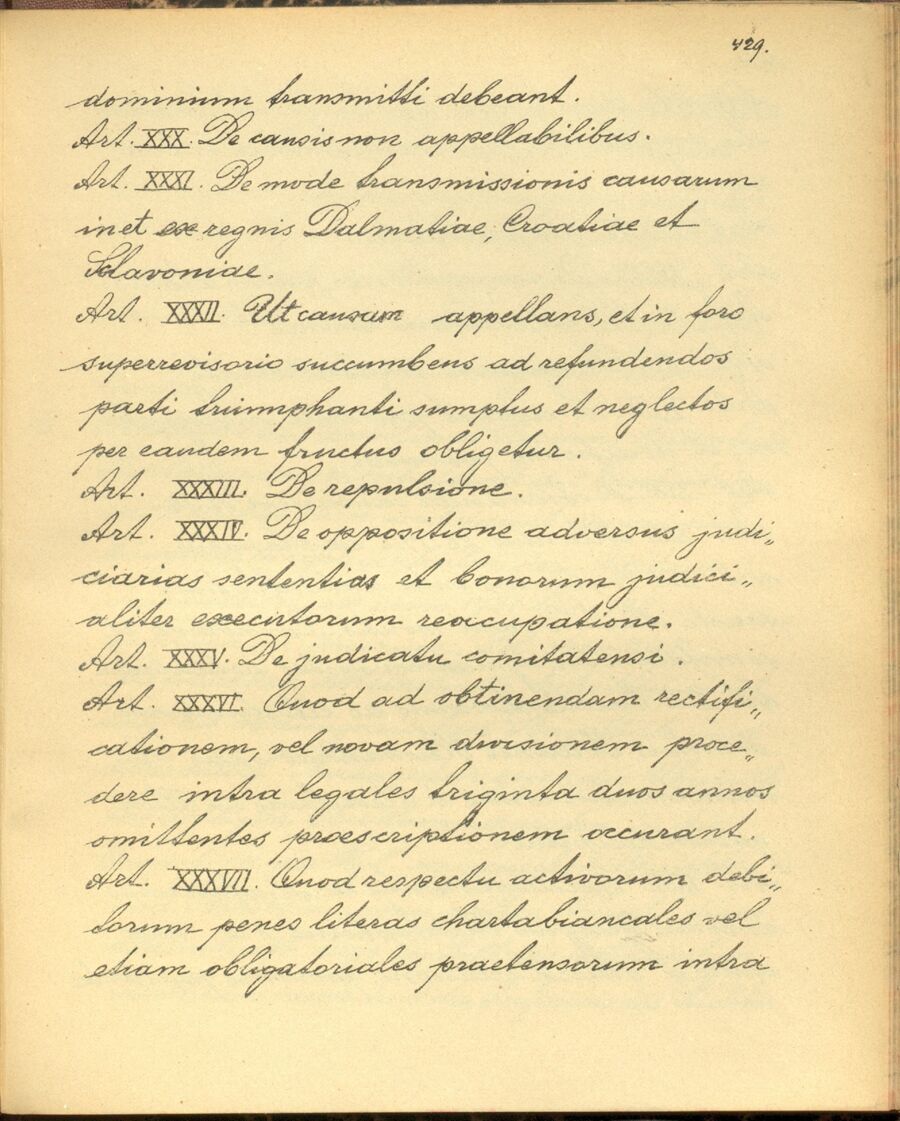 429.
dominium transmitti debeant.
Art. XXX. De causis non appellabilibus.
Art. XXXI. De mode transmissionis causarum
in et ex regnis Dalmatiae, Croatiae et
Sclavoniae.
Art. XXXII. Ut causam appellans, et in foro
superrevisorio succumbens ad refundendos
parti triumphanti sumptus et neglectos
per eandem fructus obligetur.
Art. XXXIII. De repulsione.
Art. XXXIV. De oppositione adversus judi„
ciarias sententias et bonorum judici„
aliter executorum reacupatione.
Art. XXXV. De judicatu comitatensi.
Art. XXXVI. Quod ad obtinendam rectifi„
cationem, vel novam divisionem proce„
dere intra legales triginta duos annos
omittentes praescriptionem occurant.
Art. XXXVII. Quod respectu activorum debi„
torum penes literas chartabiancales vel
etiam obligatoriales praetensorum intra